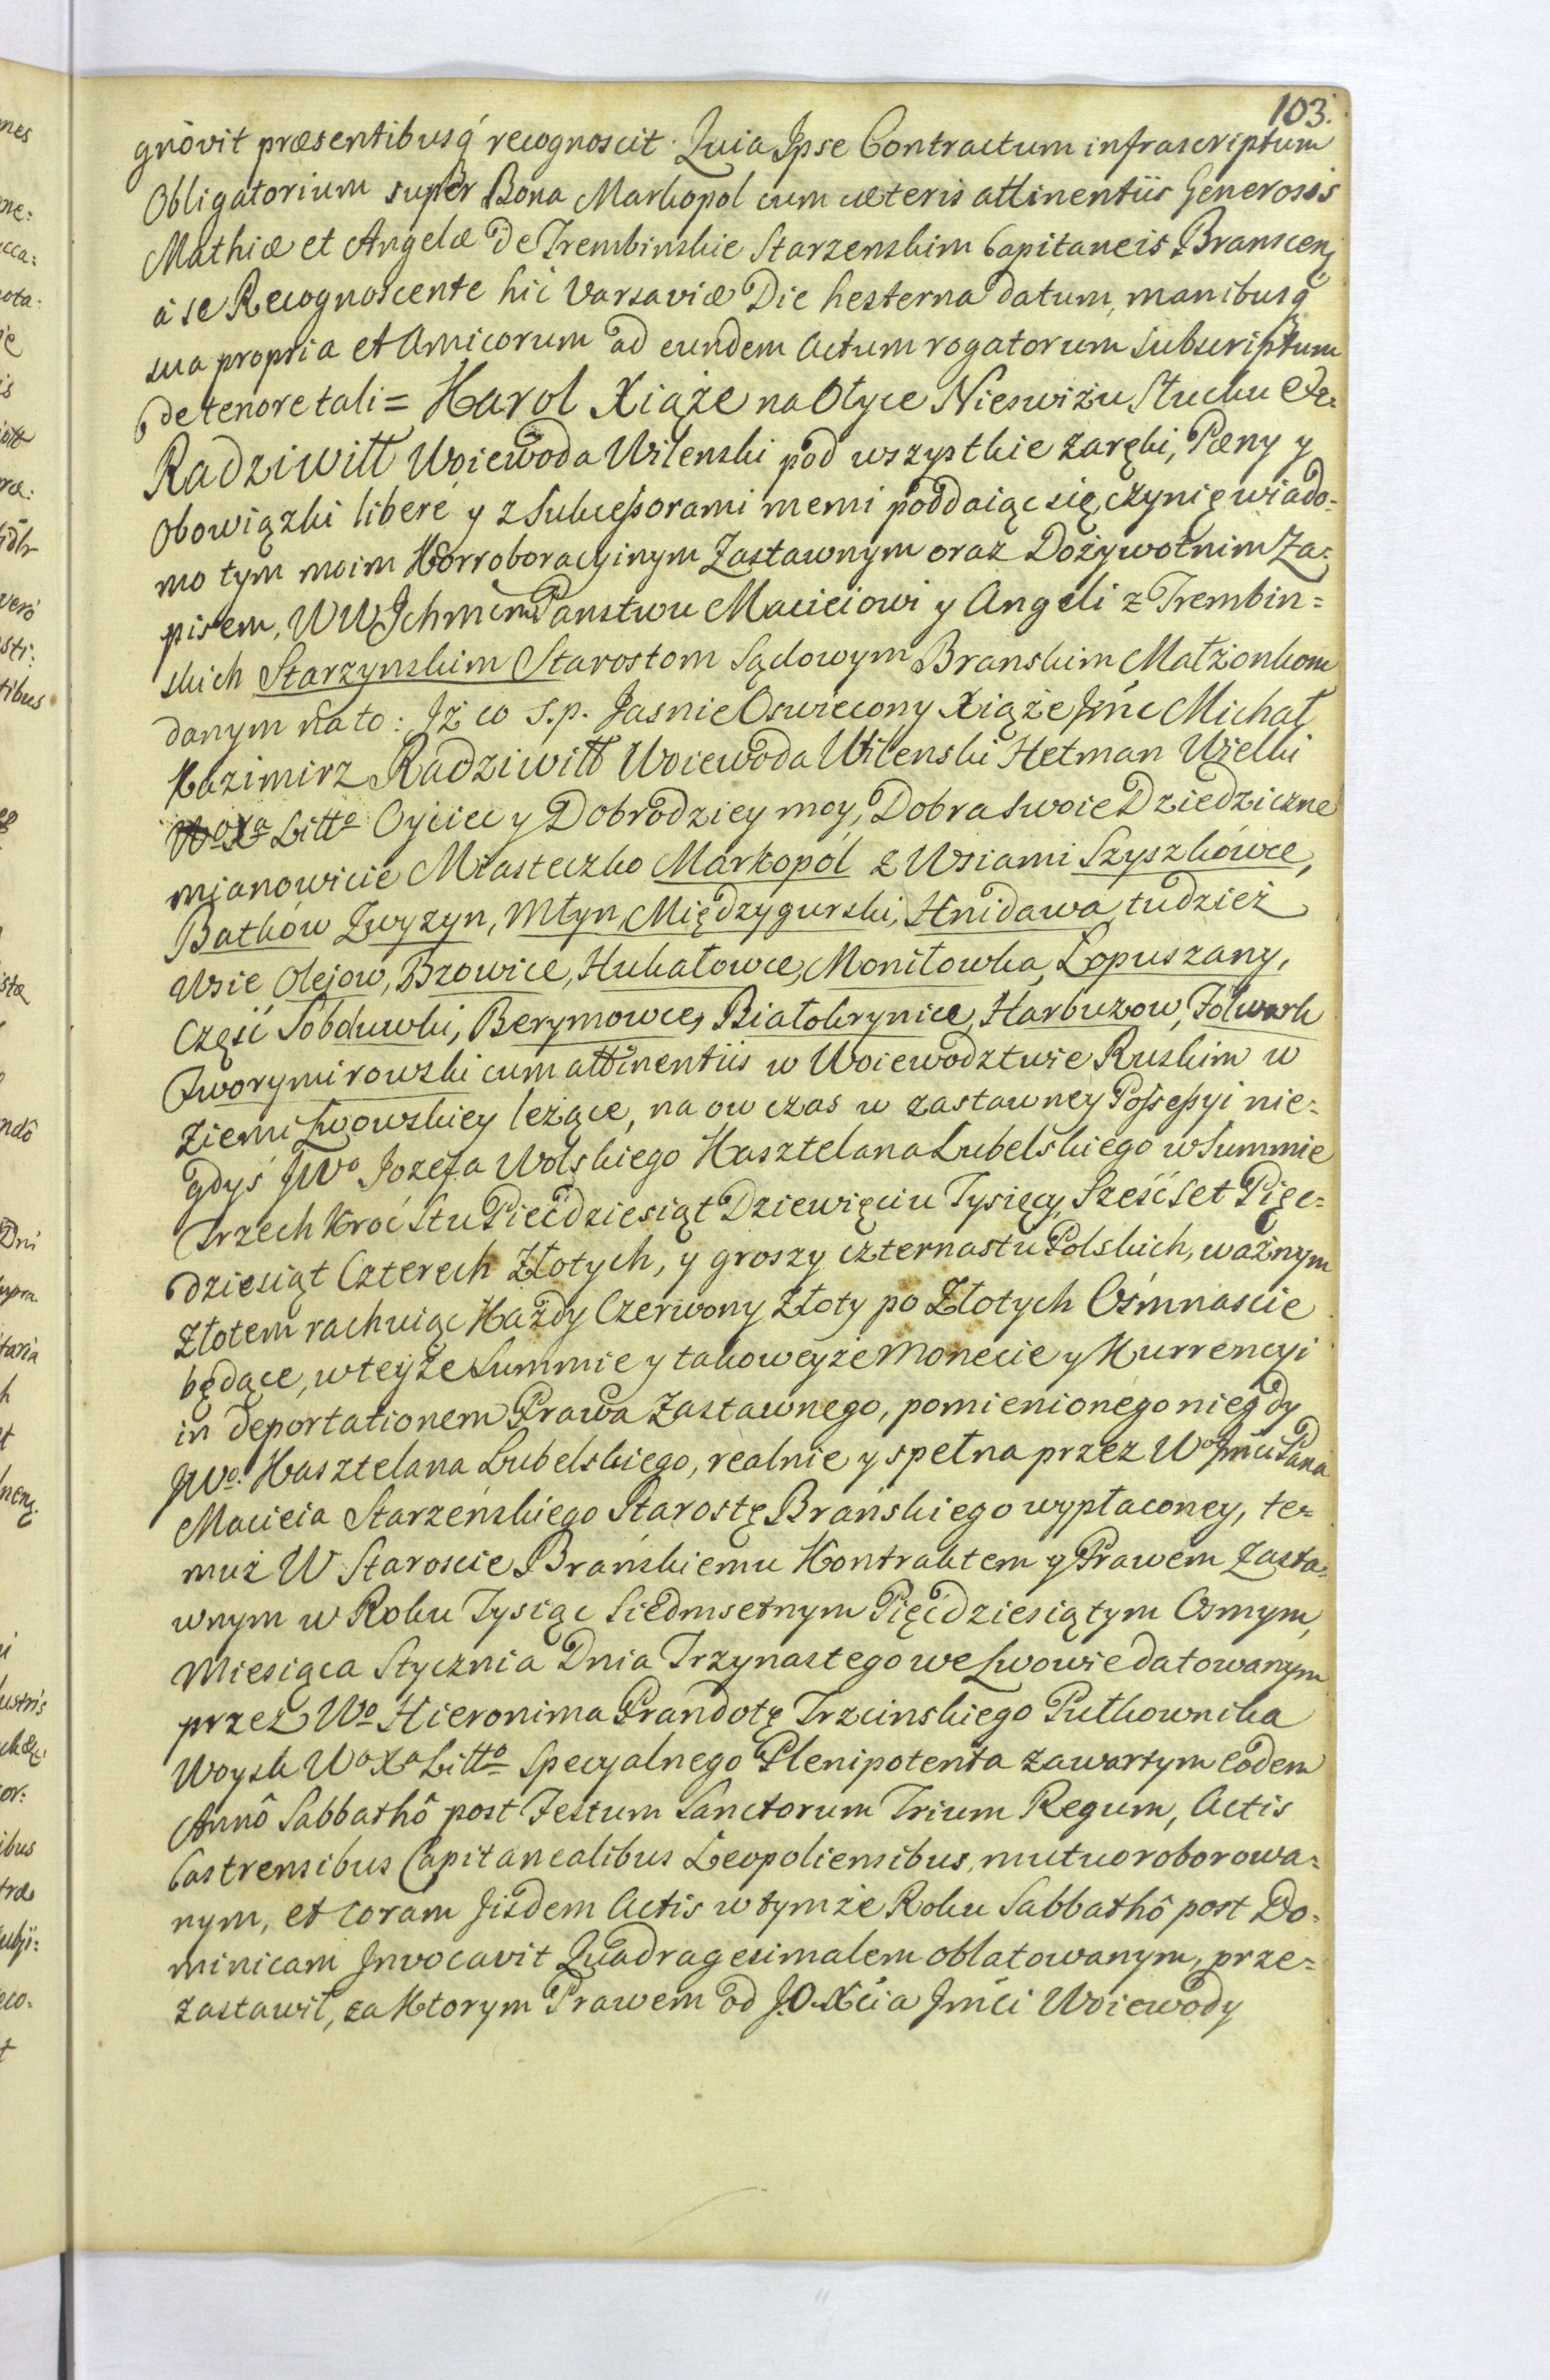 103.
gnovit præsentibusq́ recognoscit. Quia Ipse Contractum infrascriptum
Obligatorium super Bona Markopol cum cæteris attinentiis Generosis
Mathiæ et Angelæ De Trembinskie Starzenskim Capitaneis Branscen̄
à se Recognoscente hic Varsaviæ Die hesterna datum, manibusq́
sua propria et Amicorum ad eundem Actum rogatorum subscriptum
de tenore tali = Karol Xiąże na Ołyce Nieswiżu Słucku &c.
Radziwiłł Woiewoda Wilenski pod wszystkie zaręki, Pœny y
Obowiązki liberé y z Sukceßorami memi poddaiąc się, czynię wiado-
mo tym moim Korroboracyinym Zastawnym oraz Dożywotnim Za-
pisem, WW Ichmćm Panstwu Macieiowi y Angeli z Trembin=
skich Starzynskim Starostom Sądowym Branskim Małżonkom
danym na to: Iż co s.p. Jasnie Oswiecony Xiąże Jmć Michał
Kazimirz Radziwiłł Woiewoda Wilenski Hetman Wielki
Wo Xa Litto Oyciec y Dobrodziey moy, Dobra swoie Dziedziczne
mianowicie Miasteczko Markopol z Wsiami Szyszkówce,
Batków Zwyzyn, Młyn Międzygurski, Hnidawa tudzież
Wsie Olejow, Bzowice, Hukałowce, Moniłowka, Łopuszany,
Część Sobduwki, Berymowce, Białokrynice, Harbuzow, Folwark
Tworymirowski cum attinentiis w Woiewodztwie Ruskim w
Ziemi Lwowskiey leżące, na ow czas w zastawney Poßeßyi nie-
gdyś JWo Jozefa Wolskiego Kasztelana Lubelskiego w Summie
Trzech Kroć Stu Pięcdziesiąt Dziewięciu Tysięcy, Sześćset Pięc=
dziesiąt Czterech Złotych, y groszy czternastu Polskich, ważnym
Złotem rachuiąc Każdy Czerwony Złoty po Złotych Osmnascie
będące, w teyże Summie y takoweyże Monecie y Kurrencyi
in deportationem Prawa Zastawnego, pomienionego niegdy
JWo Kasztelana Lubelskiego, realnie y spełna przez Wo Jmći Pana
Macieia Starzeńskiego Starostę Brańskiego wypłaconey, te=
muż W Staroscie Brańskiemu Kontraktem y Prawem Zasta-
wnym w Roku Tysiąc Siedmsetnym Pięćdziesiątym Osmym,
Miesiąca Stycznia Dnia Trzynastego we Lwowie datowanym
przez Wo Hieronima Prandotę Trzcinskiego Pułkownika
Woysk Wo Xa Litto specyalnego Plenipotenta zawartym eodem
Annô Sabbathô post Festum Sanctorum Trium Regum, Actis
Castrensibus Capitanealibus Leopoliensibus, mutuo roborowa=
nym, et coram Jisdem Actis w tymże Roku Sabbathô post Do-
minicam Invocavit Quadragesimalem oblatowanym, prze=
zastawił, za Ktorym Prawem od J.O. Xcia Jmći Woiewody